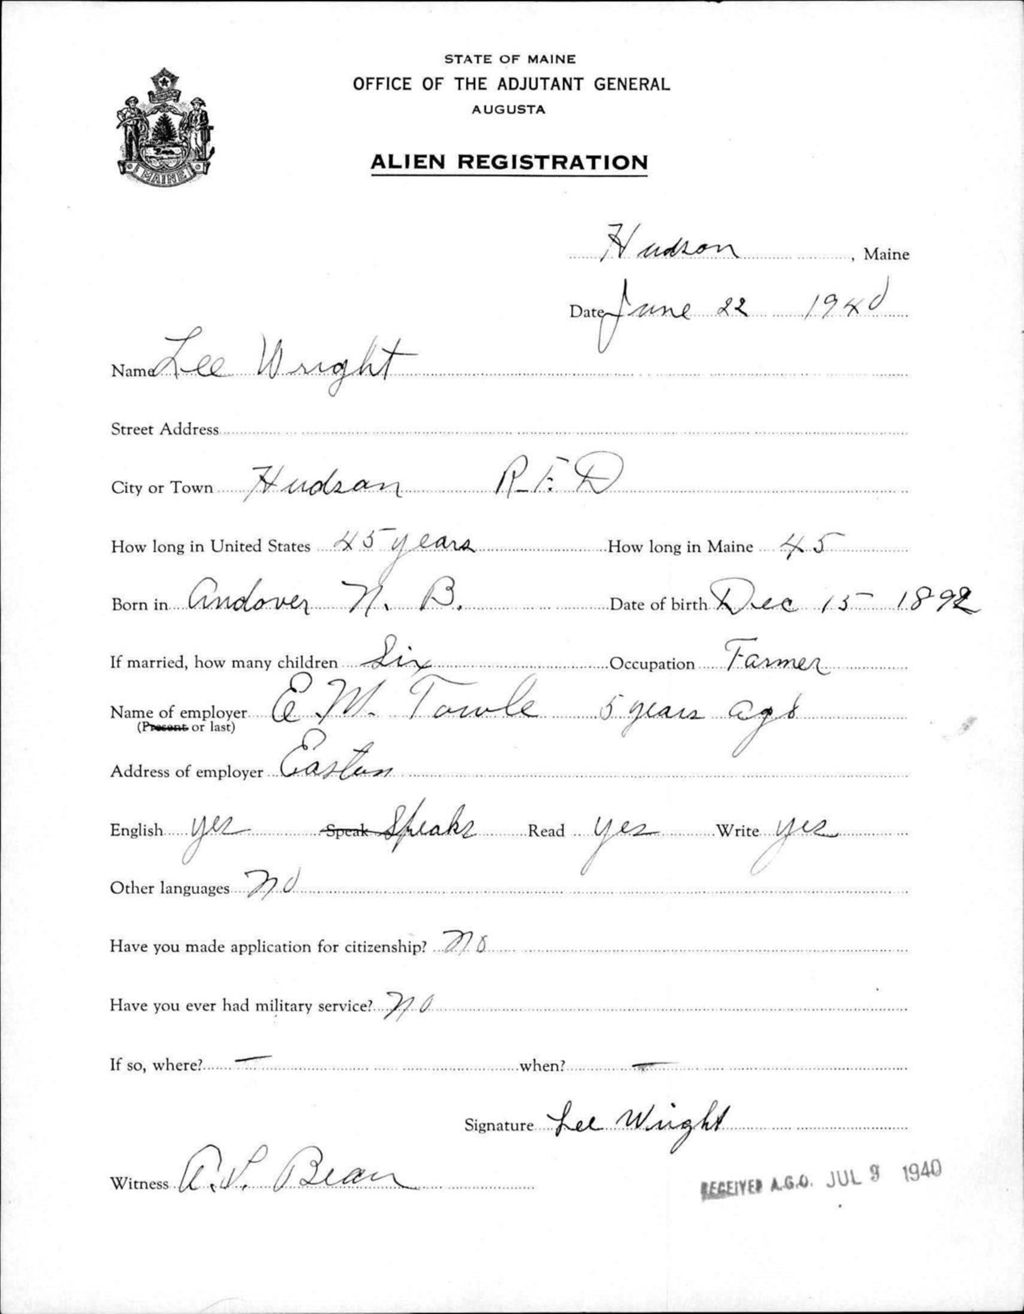 STATE OF MAINE
OFFICE OF THE ADJUTANT GENERAL
AUGUSTA
ALIEN REGISTRATION
MAINE
Hudson, Maine
Date June 22 1940
Name Lee Wright
Street Address
City or Town Hudson R.F.D
How long in United States 45 years How long in Maine 45
Born in Andover N. B. Date of birth Dec 15 1892
If married, how many children Six Occupation Farmer
Name of employer E. M. Towle 5 years ago
(Present or last)
Address of employer Easton
English yes Speak Speaks Read yes Write yes
Other languages No
Have you made application for citizenship? No
Have you ever had military service? No
If so, where? — when? —
Signature Lee Wright
Witness A. S. Bean
RECEIVED A.G.O. JUL 9 1940